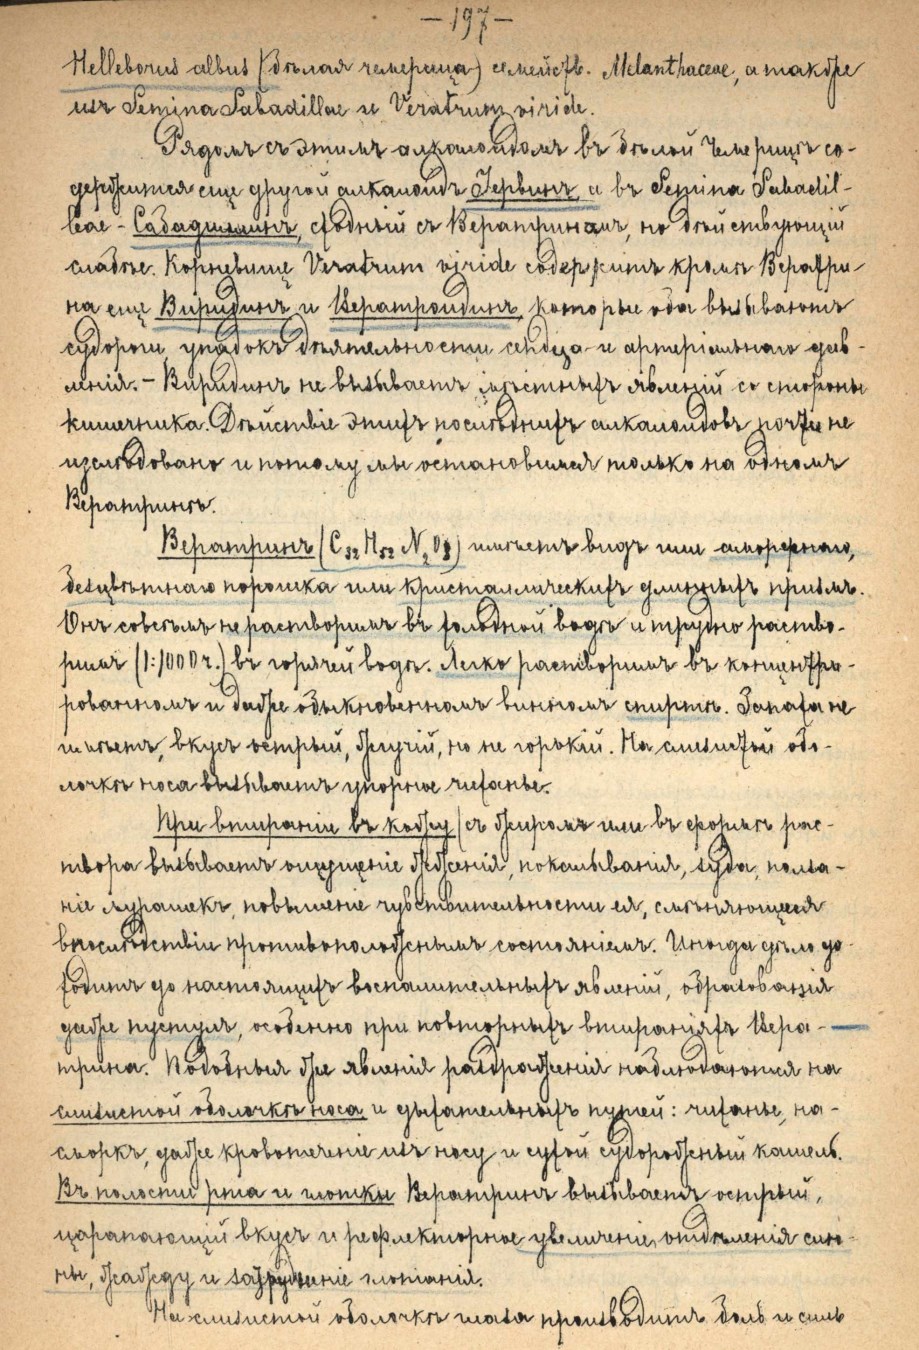 — 197 —
Helleborus albus (бѣлая чемерица) семейств. Melanthaceae, а также
изъ Semina Sabadillae и Veratrum viride.
Рядомъ съ этимъ алкалоидомъ въ бѣлой Чемерицѣ со-
держится еще другой алкалоидъ Іервинъ, а въ Semina Sabadil-
leae - Сабадиллинъ, сходный съ Вератриномъ, но дѣйствующій
слабѣе. Корневище Veratrum viride содержитъ кромѣ Вератри-
на еще Виридинъ и Вератроидинъ, которые оба вызываютъ
судороги, упадокъ дѣятельности сердца и артеріальнаго дав-
ленія. — Виридинъ не вызываетъ мѣстныхъ явленій со стороны
кишечника. Дѣйствіе этихъ послѣднихъ алкалоидовъ почти не
изслѣдовано и потому мы остановимся только на одномъ
Вератринѣ.
Вератринъ (C32 H52 N2 O8) имѣетъ видъ или аморфнаго,
безцвѣтнаго порошка или кристаллическихъ длинныхъ призмъ.
Онъ совсѣмъ не растворимъ въ холодной водѣ и трудно раство-
римъ (1:1000 ч.) въ горячей водѣ. Легко растворимъ въ концентри-
рованномъ и даже обыкновенномъ винномъ спиртѣ. Запаха не
имѣетъ, вкусъ острый, жгучій, но не горькій. На слизистой обо-
лочкѣ носа вызываетъ упорное чиханье.
При втираніи въ кожу (съ жиромъ или въ формѣ рас-
твора вызываетъ ощущеніе жженія, покалыванія, зуда, полза-
ніе мурашекъ, повышеніе чувствительности ея, смѣняющееся
впослѣдствіи противоположнымъ состояніемъ. Иногда дѣло до-
ходитъ до настоящихъ воспалительныхъ явленій, образованія
даже пустулъ, особенно при повторныхъ втираніяхъ Вера-
трина. Подобныя же явленія раздраженія наблюдаются на
слизистой оболочкѣ носа и дыхательныхъ путей: чиханье, на-
сморкъ, даже кровотеченіе изъ носу и сухой судорожный кашель.
Въ полости рта и глотки Вератринъ вызываетъ острый,
царапающій вкусъ и рефлекторное увеличеніе отдѣленія слю-
ны, жажду и затрудненіе глотанія.
На слизистой оболочкѣ глаза производитъ боль и силь